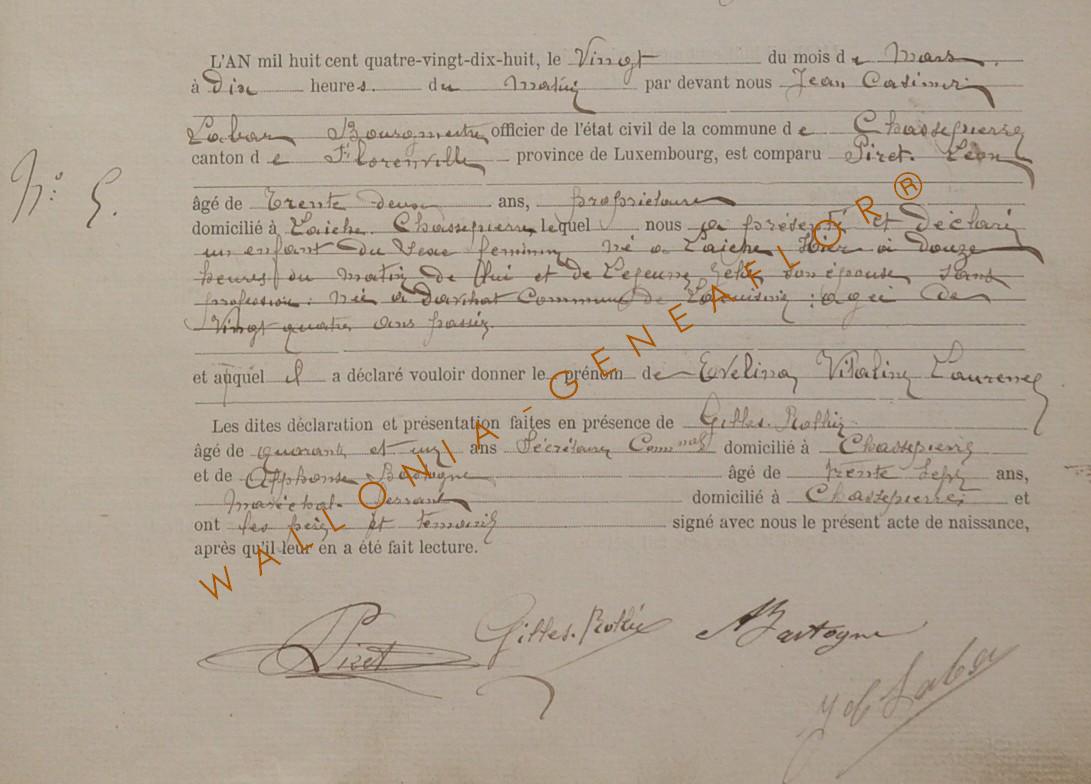 L'AN mil huit cent quatre-vingt-dix-huit, le Vingt du mois de Mars
à Dix heures. du Matin par devant nous Jean Casimir
Labar Bourgmestre officier de l'état civil de la commune de Chassepierre
canton de Florenville province de Luxembourg, est comparu Piret. Léon
N°. 5.
âgé de trente deux ans, propriétaire
domicilié à Laiche. Chassepierre lequel nous a présenté et déclaré
un enfant du sexe féminin, né à Laiche Hier à douze
heures du Matin de lui et de Lejeune son épouse sans
profession. née à Commune de agée de
Vingt quatre ans passés.
et auquel il a déclaré vouloir donner le prénom de Evelina, Vitaline Laurence
Les dites déclaration et présentation faites en présence de Gilles. Rothie
âgé de quarante et un ans Secrétaire Commnal domicilié à Chassepierre
et de Alphonse Bastogne âgé de trente sept ans,
Maréchal. ferrant domicilié à Chassepierre et
ont les père et temoins signé avec nous le présent acte de naissance,
après qu'il leur en a été fait lecture.
WALLONIA-GENEAFLOR®
Piret Gilles. Rothie ABastogne
Labar